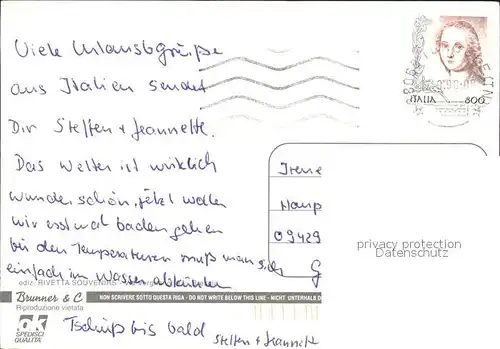 Viele Urlaubsgrüße
aus Italien sendet
Dir Steffen + Jeannette.
Das Wetter ist wirklich
wunderschön, jetzt wollen
wir erstmal baden gehen
bei den Temperaturen muß man sich
einfach im Wasser abkühlen
Tschüß bis bald
Steffen + Jeannette
ITALIA 800
Irene
Haup
09429
G
privacy protection
Datenschutz
ediz. RIVETTA SOUVENIRS
Brunner & C
Riproduzione vietata
NON SCRIVERE SOTTO QUESTA RIGA - DO NOT WRITE BELOW THIS LINE - NICHT UNTERHALB D
OK
SPEDISCI
QUALITÀ